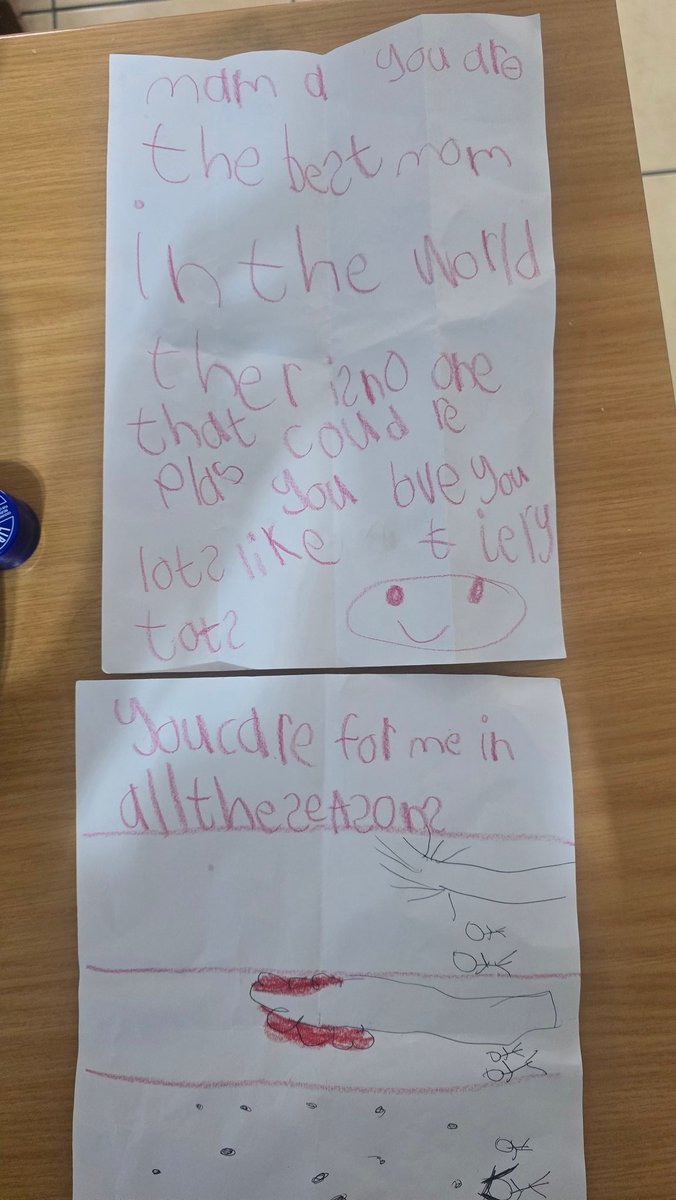 mam a you are
the best mom
in the world
ther is no one
that coud re
plas you love you
lots like tiery
tots
You care for me in
all the seasons